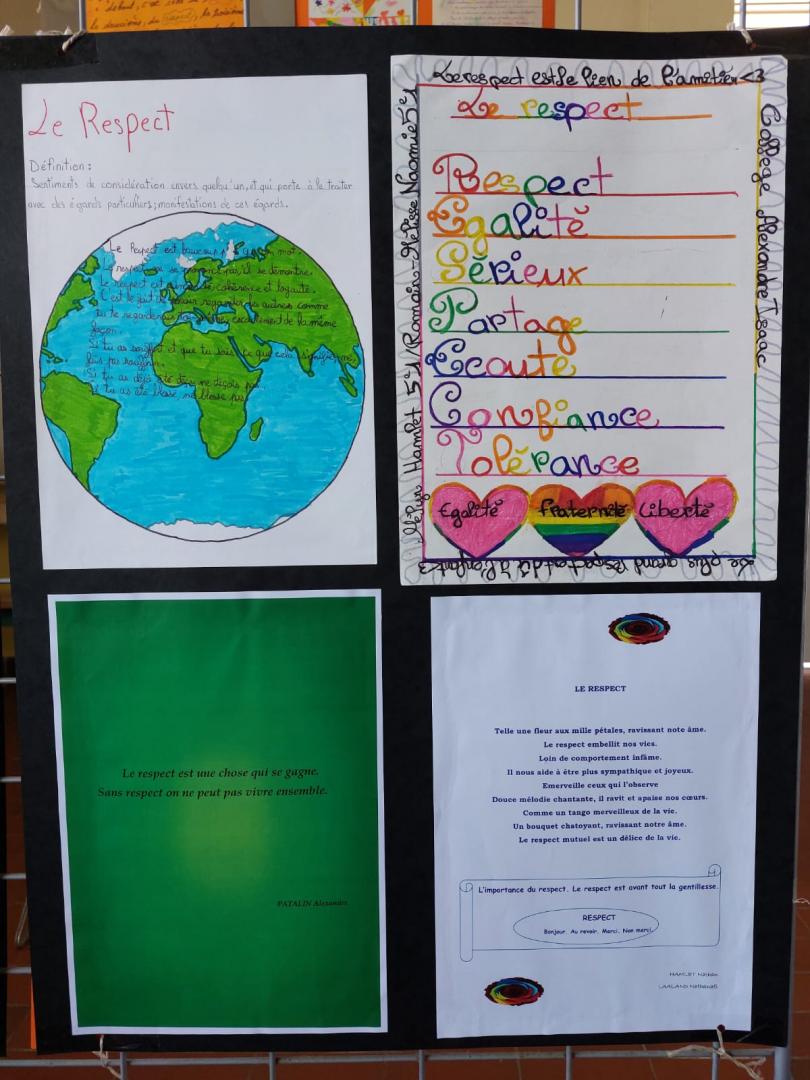 Le Respect
Définition :
Sentiments de considération envers quelqu'un, et qui porte à le traiter
avec des égards particuliers; manifestations de ces égards.
Le Respect est beaucoup mot.
Le respect ne se pas, il se démontre.
Le respect est cohérence et loyauté.
C'est le fait de regarder les autres comme
tu te de la même
façon.
Si tu as souffert et que tu sais ce que cela signifie,
fais pas
Si tu as déjà été déçu, ne déçois pas.
Si tu as été blessé, ne blesse pas.
Le respect est le lien de l'amitier <3
Le respect
Respect
Egalité
Sérieux
Partage
Ecoute
Confiance
Tolérance
Egalité fraternité Liberté
Hamlet 5e1/Romain-Hélisse Naomie 5e1
College Alexandre Isaac
Le plus grand respect est dû à l'enfant <3
Le respect est une chose qui se gagne.
Sans respect on ne peut pas vivre ensemble.
PATALIN Alexandre
LE RESPECT
Telle une fleur aux mille pétales, ravissant note âme.
Le respect embellit nos vies.
Loin de comportement infâme.
Il nous aide à être plus sympathique et joyeux.
Emerveille ceux qui l'observe
Douce mélodie chantante, il ravit et apaise nos cœurs.
Comme un tango merveilleux de la vie.
Un bouquet chatoyant, ravissant notre âme.
Le respect mutuel est un délice de la vie.
L'importance du respect. Le respect est avant tout la gentillesse.
RESPECT
Bonjour. Au revoir. Merci. Non merci.
HAMLET Nathan
LAALAND Nathanaël